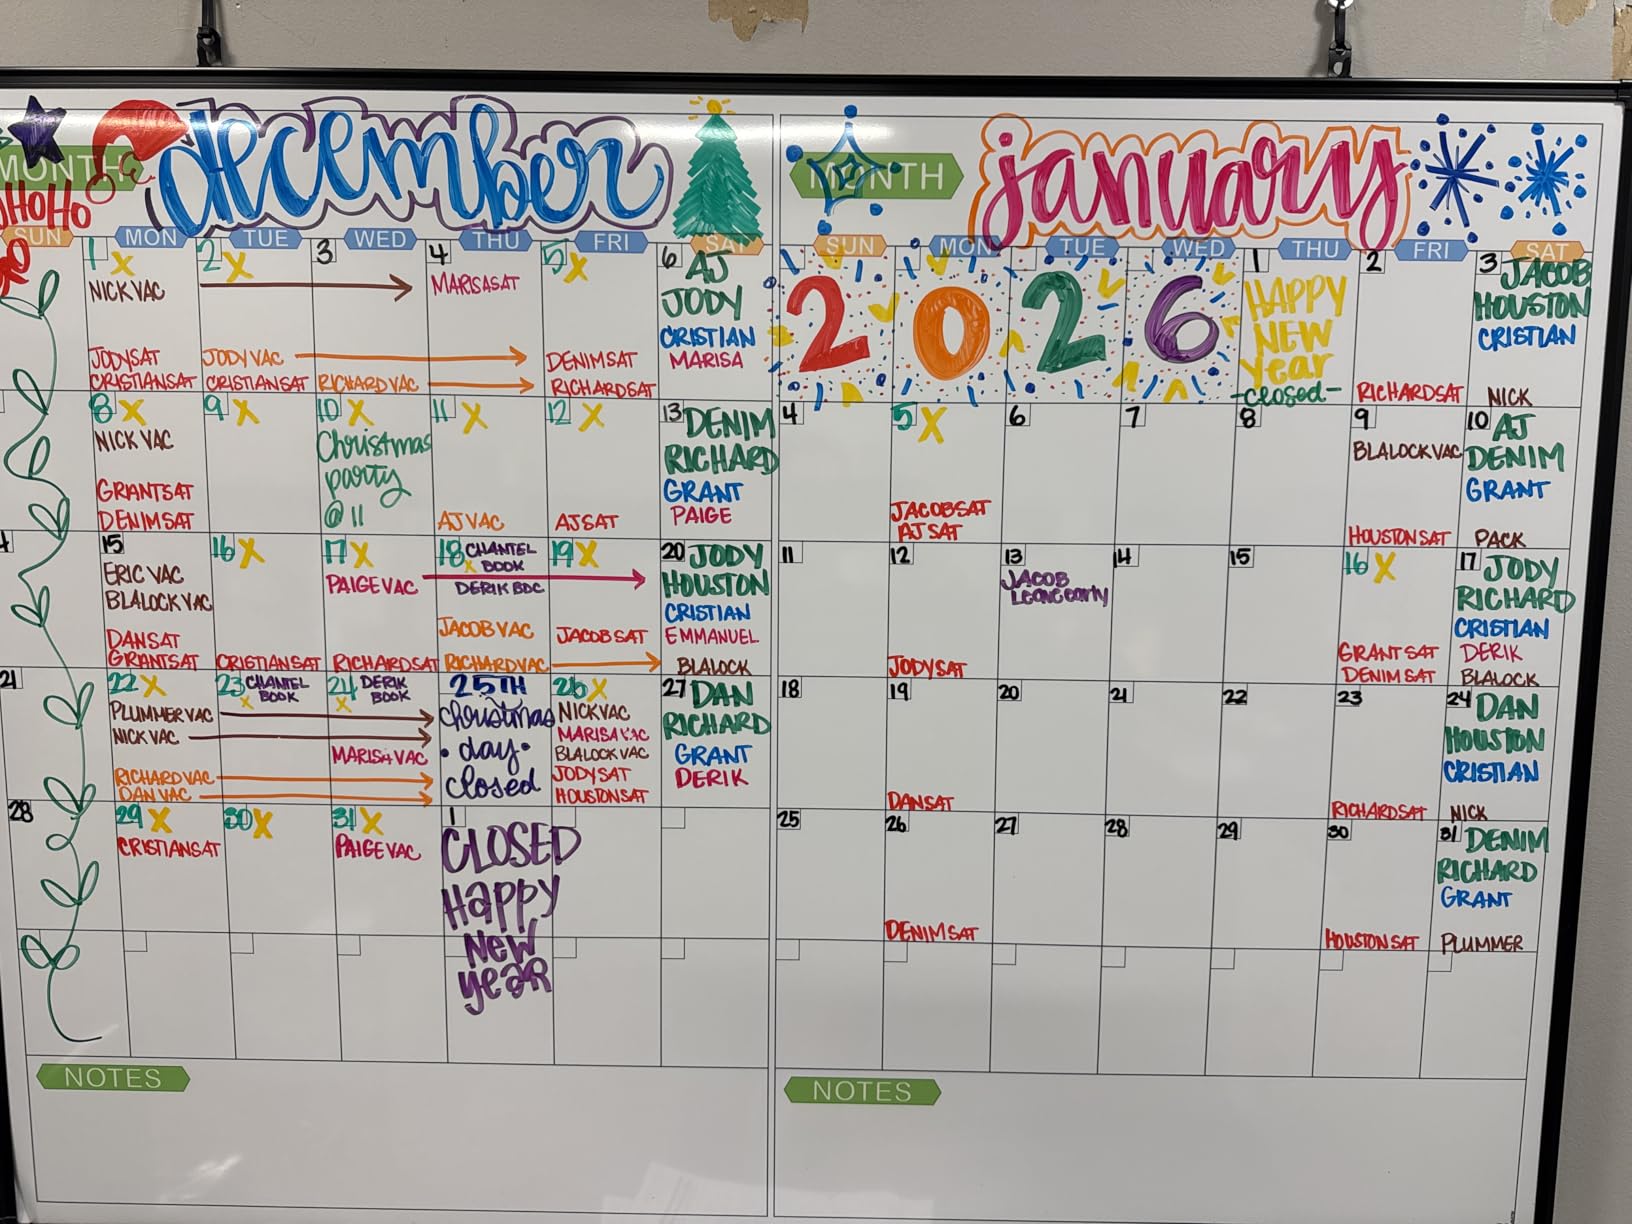 MONTH
december
HOHO
SUN
MON
TUE
WED
THU
FRI
SAT
1 X
NICK VAC
JODY SAT
CRISTIAN SAT
2 X
JODY VAC
CRISTIAN SAT
3
RICHARD VAC
4
MARISA SAT
5 X
DENIM SAT
RICHARD SAT
6 AJ
JODY
CRISTIAN
MARISA
8 X
NICK VAC
GRANT SAT
DENIM SAT
9 X
10 X
Christmas
party
@ 11
11 X
AJ VAC
12 X
AJ SAT
13 DENIM
RICHARD
GRANT
PAIGE
15
ERIC VAC
BLALOCK VAC
DAN SAT
GRANT SAT
16 X
CRISTIAN SAT
17 X
PAIGE VAC
RICHARD SAT
18 CHANTEL
X BOOK
DERIK BDC
JACOB VAC
RICHARD VAC
19 X
JACOB SAT
20 JODY
HOUSTON
CRISTIAN
EMMANUEL
BLALOCK
21
22 X
PLUMMER VAC
NICK VAC
RICHARD VAC
DAN VAC
23 CHANTEL
X BOOK
24 DERIK
X BOOK
MARISA VAC
25TH
Christmas
• day •
closed
26 X
NICK VAC
MARISA VAC
BLALOCK VAC
JODY SAT
HOUSTON SAT
27 DAN
RICHARD
GRANT
DERIK
28
29 X
CRISTIAN SAT
30 X
31 X
PAIGE VAC
1
CLOSED
Happy
New
year
NOTES
MONTH
january
SUN
MON
TUE
WED
THU
FRI
SAT
2026
1
HAPPY
NEW
year
-closed-
2
RICHARD SAT
3 JACOB
HOUSTON
CRISTIAN
NICK
4
5 X
JACOB SAT
AJ SAT
6
7
8
9
BLALOCK VAC
HOUSTON SAT
10 AJ
DENIM
GRANT
PACK
11
12
JODY SAT
13
JACOB
Leave early
14
15
16 X
GRANT SAT
DENIM SAT
17 JODY
RICHARD
CRISTIAN
DERIK
BLALOCK
18
19
DAN SAT
20
21
22
23
RICHARD SAT
24 DAN
HOUSTON
CRISTIAN
NICK
25
26
DENIM SAT
27
28
29
30
HOUSTON SAT
31 DENIM
RICHARD
GRANT
PLUMMER
NOTES